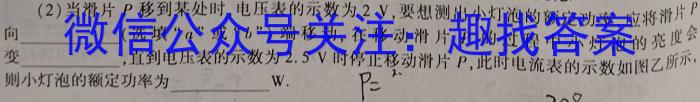 (2)当滑片P移到某处时,电压表的示数为2 V,要想测出小灯泡的额定功率,应将滑片P
向 选填"a"或"b" 端移动,在移动滑片 的亮度会
微信公众号关注:趣找答案
变________,直到电压表的示数为2.5 V时停止移动滑片P,此时电流表的示数如图乙所示,
则小灯泡的额定功率为________W.
P=